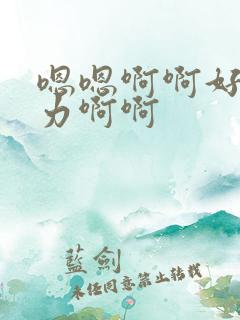 嗯嗯啊啊好
力啊啊
藍劍
未经同意禁止转载